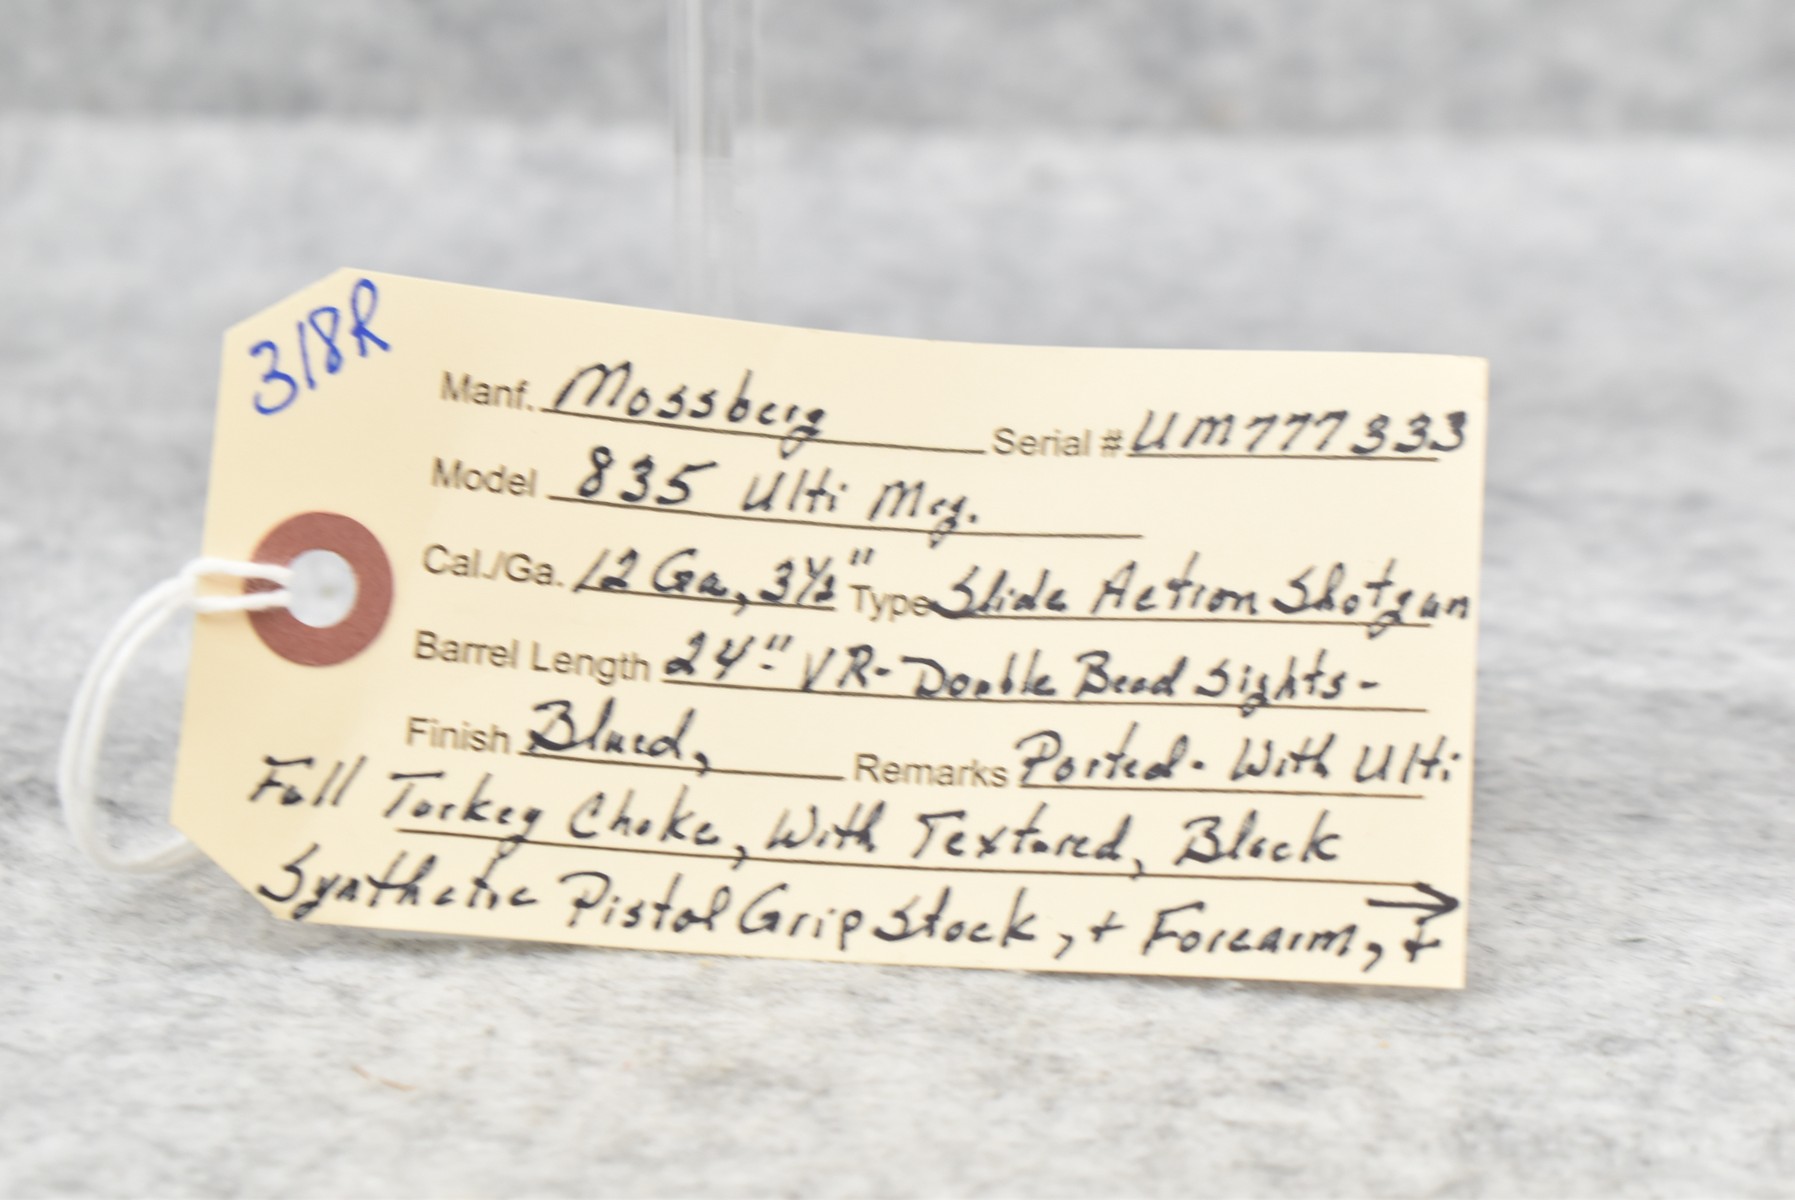 318R
Manf. Mossberg Serial # UM777333
Model 835 Ulti Mag.
Cal./Ga. 12 Ga, 3½" Type Slide Action Shotgun
Barrel Length 24" VR- Double Bead Sights-
Finish Blued, Remarks Ported- With Ulti
Full Turkey Choke, With Textured, Black
Synthetic Pistol Grip Stock, + Forearm, + →